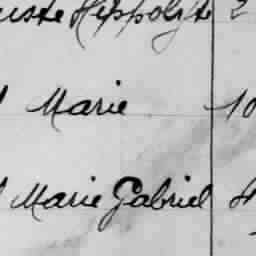 Hippolyte 2
Marie 10
Marie Gabriel